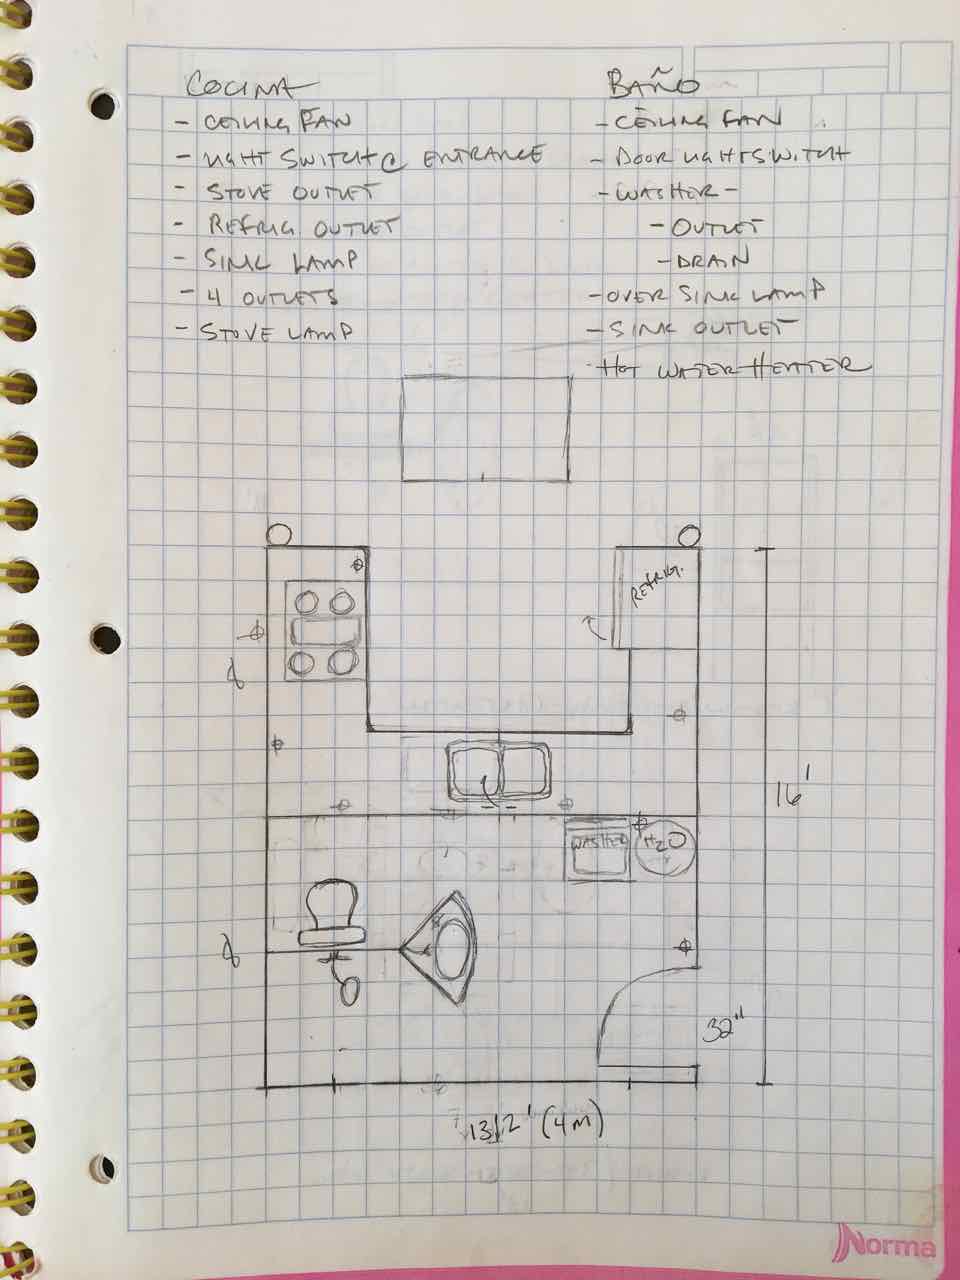 COCINA
- CEILING FAN
- LIGHT SWITCH @ ENTRANCE
- STOVE OUTLET
- REFRIG. OUTLET
- SINK LAMP
- 4 OUTLETS
- STOVE LAMP
BAÑO
- CEILING FAN
- DOOR LIGHT SWITCH
- WASHER -
- OUTLET
- DRAIN
- OVER SINK LAMP
- SINK OUTLET
- HOT WATER HEATER
REFRIG.
16'
WASHER
H2O
32"
13 1/2' (4M)
Norma